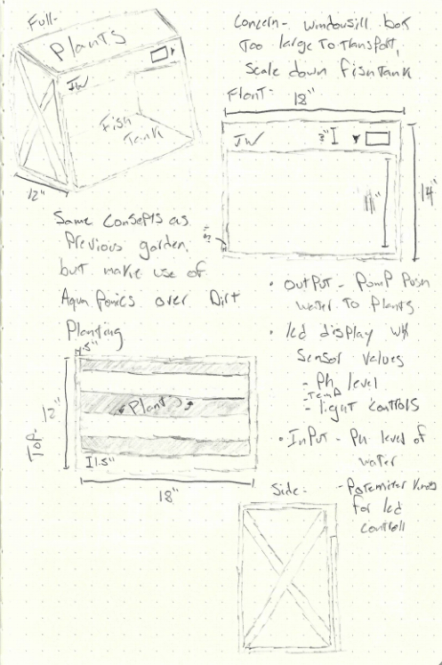 Full-
Plants
JW
Fish
Tank
12"
Concern- windowsill box
Too large To Transport,
Scale down fishTank
Front-
JW
11"
14"
Same Consepts as
Previous garden,
but make use of
Aqua Ponics over Dirt
Planting
.5"
Top:
12"
Plants
1.5"
18"
• OutPut - PumP Push
water To Plants.
• lcd display w/
Sensor values
- Ph level
- Temp
- light controls
• InPut - PH level of
water
for lcd
controll
Side: